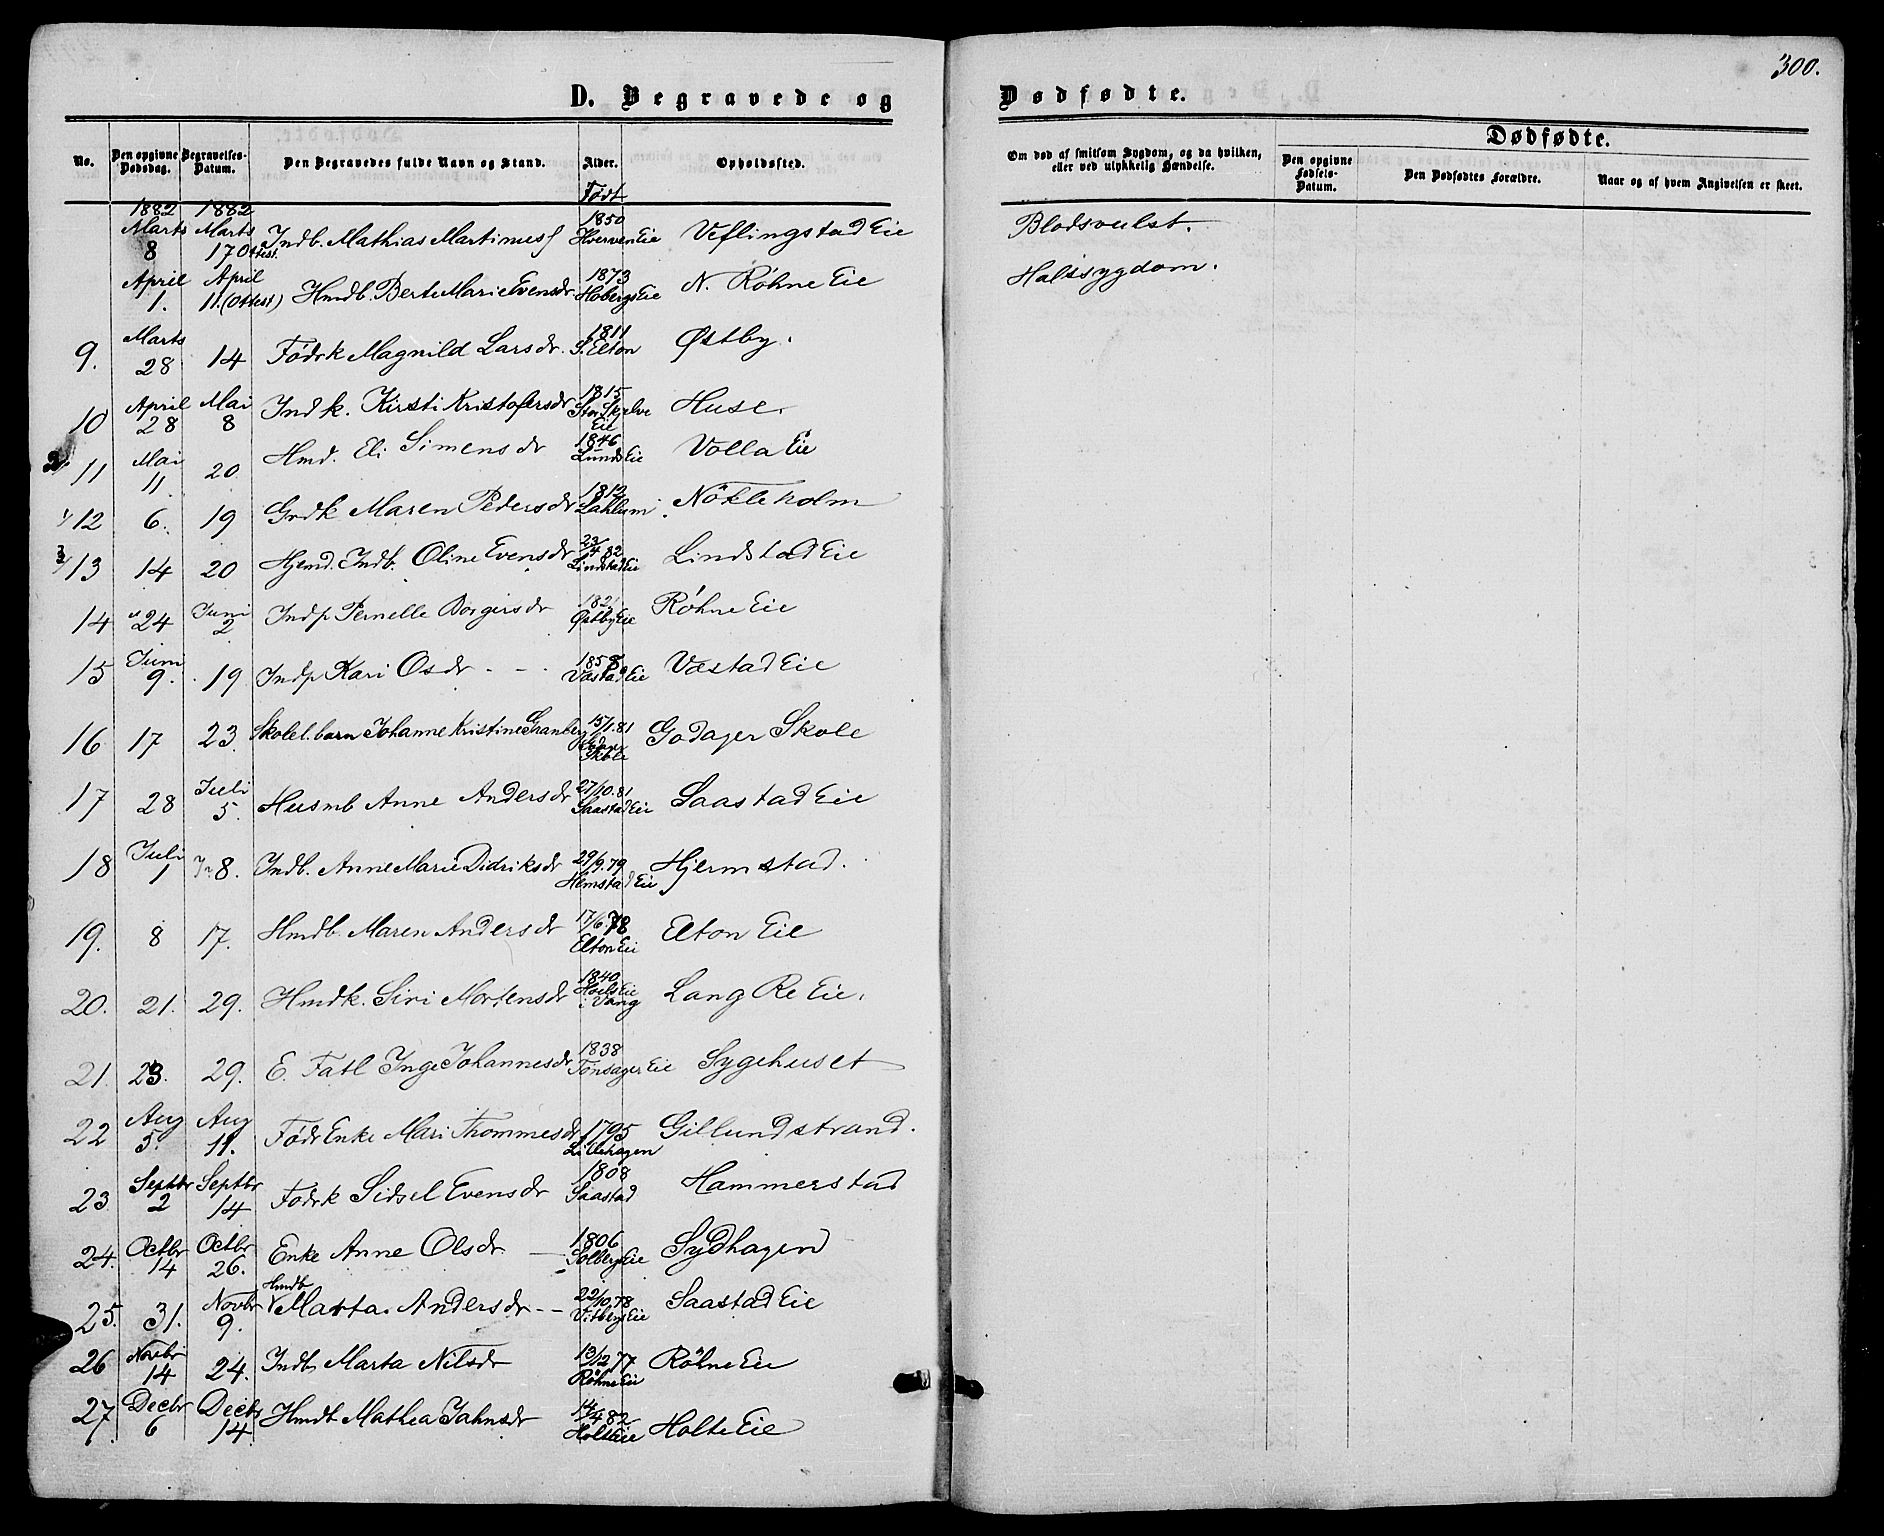 300.
D. Begravede og
Dødfødte.
No. Den opgivne Dødsdag. Begravelses-Datum. Den Begravedes fulde Navn og Stand. Alder. Opholdssted.
Om død af smitsom Sygdom, og da hvilken, eller ved ulykkelig Hændelse. Dødfødte.
Den opgivne Fødsels-Datum. Den Dødfødtes Forældre. Naar og af hvem Angivelsen er skeet.
Født
1882 1882
Marts 8 Marts 17 Attest. Indb. Mathias Martinus 1850 Hverven Eie Veflingstad Eie Blodsvulst.
April 1. April 11. (Attest) Hmdb. Berte Marie Evensdr 1873 Hobergs Eie N. Røhne Eie Halssygdom.
9. Marts 28 14 Fødrk Magnild Larsdr. 1811 S. Elton Østby.
10 April 28 Mai 8 Indk. Kirsti Kristofersdr 1815 Stor Skjelve Eie Huse.
11 Mai 11 20 Hmd. Eli Simensdr 1846 Lunds Eie Volla Eie
12 6. 19 Grdk Maren Pedersdr 1812 Nökleholm
13 14 20 Hjemd. Indb. Oline Evensdr 23/4 82 Lindstad Eie Lindstad Eie
14 24 Juni 2 Indp Pernelle Borgersdr 1821 Østby Eie Røhne Eie
15 Juni 9. 19 Indp Kari Osdr - - - 1858 Væstad Eie Væstad Eie
16 17 23. Skolel. barn Johanne Kristine Granberg 15/1.81 Skole Godager Skole
17 28 Juli 5. Husmb Anne Andersdr 27/10.81 Saastad Eie Saastad Eie
18 Juli 1 8. Indb. Anne Marie Didriksdr 29/9.79 Hemstad Eie Hjermstad.
19. 8 17. Hmdb. Maren Andersdr 17/6.78 Elton Eie Elton Eie
20. 21. 29. Hmdk. Siri Mortensdr 1840 Hoels Eie i Vang Lang Re Eie.
21. 23. 29. E. Fatl Inge Johannesdr 1838 Tonsager Eie Sygehuset
22 Aug 5. Aug 11. Fødr Enke Mari Thommesdr 1795 Lillehagen Gillundstrand.
23 Septbr 2 Septbr 14 Fødrk Sidsel Evensdr 1808 Saastad Hammerstad
24. Octbr 14 Octbr 26. Enke Anne Olsdr 1806 Solberg Eie Sydhagen
25. 31. Novbr 9. Hmdb Marta Andersdr - - 22/10.78 Vitbergs Eie Saastad Eie
26 Novbr 14 24. Indb Marta Nilsdr 13/12 77 Røhne Eie Røhne Eie
27. Decbr 6 Decbr 14. Hmdb Mathea Jahnsdr 14/4 82 Holte Eie Holte Eie